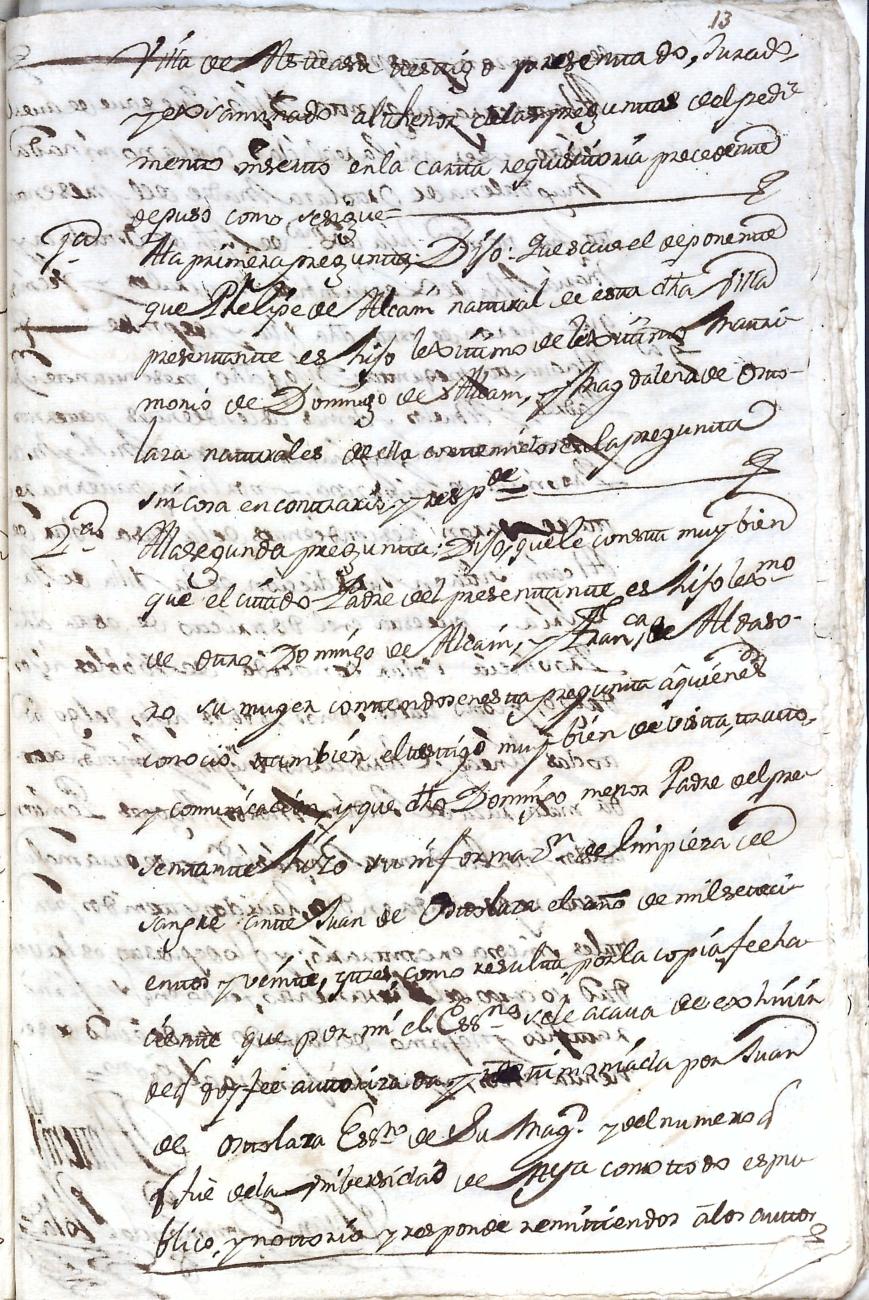 13
Villa de Asteasu testigo presentado, Jurado,
y exsaminado althenor delas preguntas del pedi-
mento inserto enla carta requisitoria precedente
depuso como sesigue=
1ª
Ala primera pregunta; Dijo: Que save el deponente
que Phelipe de Alcain natural de esta dha Villa
presentante es hijo lexitimo de lexitimo Matri-
monio de Domingo de Alcain, y Magdalena de Otto-
lara naturales de ella contenidos en la pregunta
sin cosa en contrario y resp.de
2ª
Ala segunda pregunta; Dijo, que le consta muy bien
que el citado Padre del presentante es hijo lexmo
de otro Domingo de Alcain, y Fran.ca de Aldaso-
ro su muger contenidos en esta pregunta a quienes
conoció tambien el testigo muy bien de vista, tratto,
y comunicacion, y que dho Domingo menor Padre del pre-
sentante hizo su informaon de limpieza de
sangre ante Juan de Ottolara el año de mil seteci-
entos y veinte, y tres como resulta por la copia fecha-
ciente que por mi el Essno sele acava de exhivir
de q doy fee autorizada y testimoniada por Juan
de Ottolara Essno de Su Magd. y del numero q
fue dela Vniversidad de Aya como todo es pu-
blico, y nottorio y responde remitiendose a los auttos